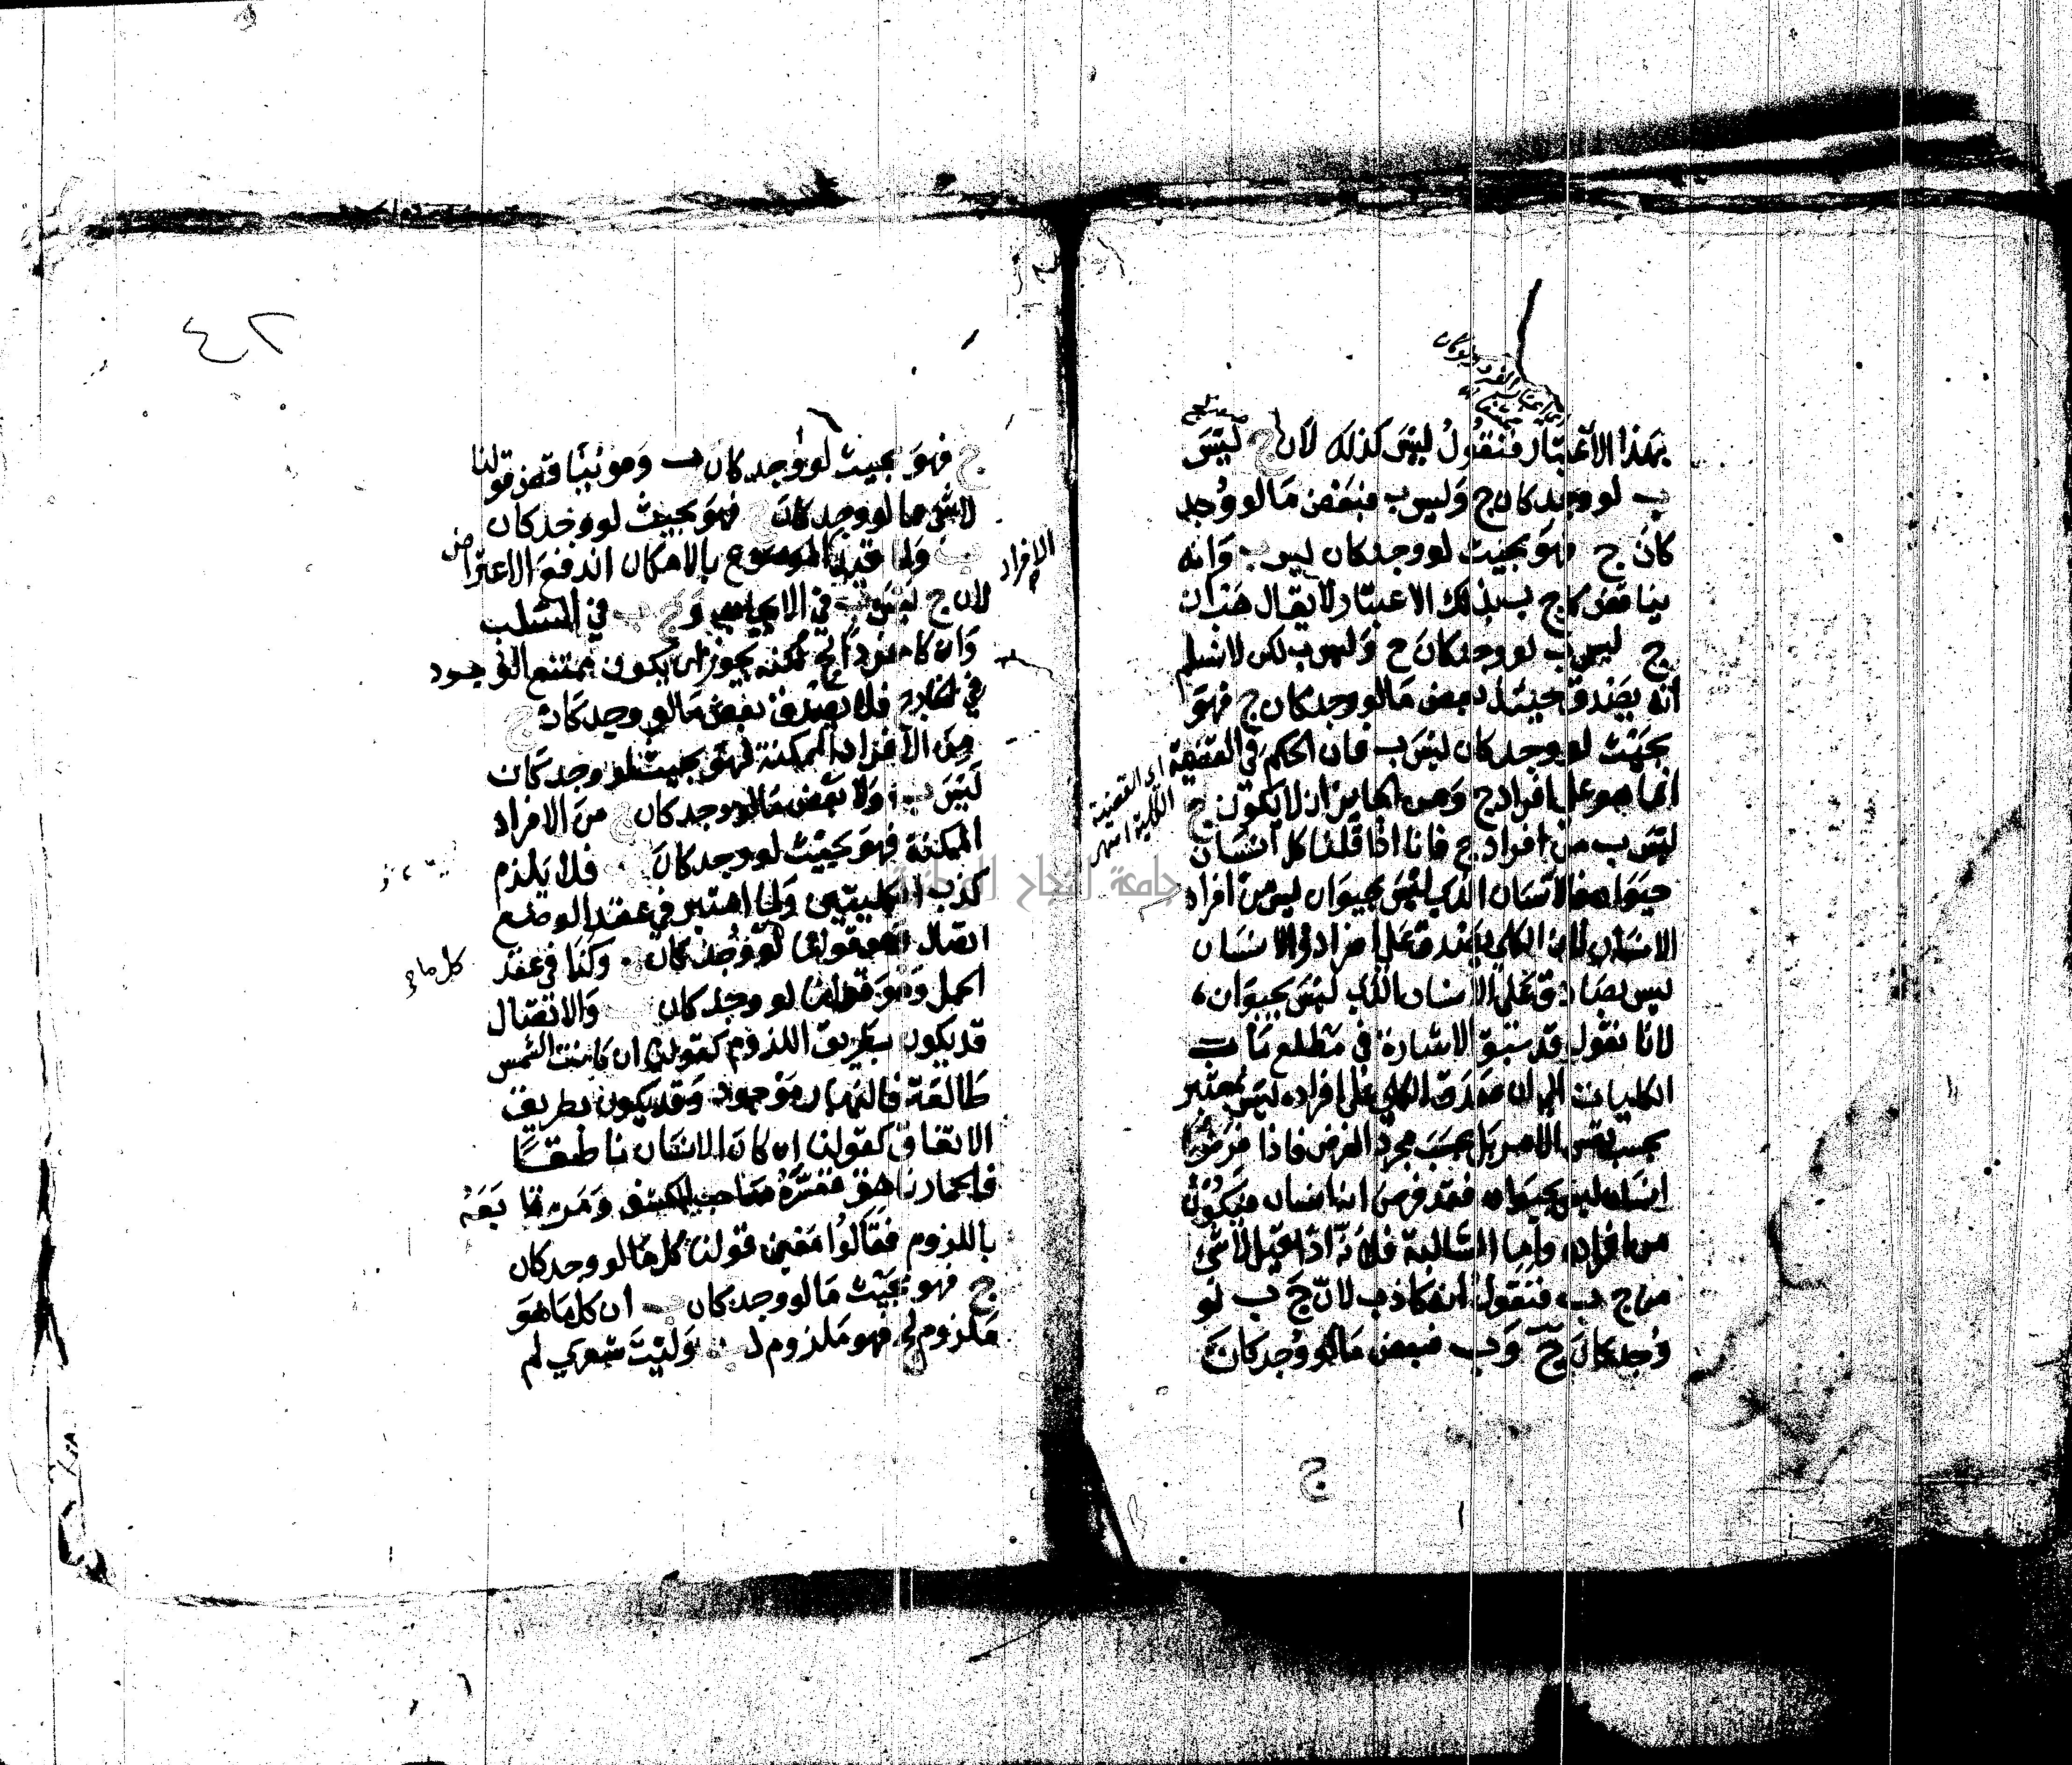 بهذا الاعتبار فنقول ليس كذلك لان ج ليس
ب لو وجد كان ج وليس ب فبعض ما لو وجد
كان ج فهو بحيث لو وجد كان ليس ب وانه
يناقض كل ج ب بذلك الاعتبار لا يقال هب ان
ج ليس ب لو وجد كان ج وليس ب لكن لا نسلم
انه يصدق حينئذ بعض ما لو وجد كان ج فهو
بحيث لو وجد كان ليس ب فان الحكم في القضية
انما هو على افراد ج ومن الجايز ان لا يكون ج
ليس ب من افراد ج فانا اذا قلنا كل انسان
حيوان فالانسان الذي ليس بحيوان ليس من افراد
الانسان لان الكلي يصدق على افراده والانسان
ليس بصادق على الانسان الذي ليس بحيوان
لانا نقول قد سبق الاشارة في مطلع باب
الكليات الى ان صدق الكلي على افراده ليس بمعتبر
بحسب نفس الامر بل بحسب مجرد الفرض فاذا فرض
انسان ليس بحيوان فقد فرض انه انسان فيكون
من افراده واما السالبة فلانه اذا قيل لا شئ
من ج ب فنقول انه كاذب لان ج ب لو
وجد كان ج وب فبعض ما لو وجد كان
اي القضية
الكلية
ج
٤٢
ج فهو بحيث لو وجد كان ب وهو يناقض قولنا
لا شئ مما لو وجد كان فهو بحيث لو وجد كان
ب ولما قيد الموضوع بالامكان اندفع الاعتراض
لان ج ليس ب في الايجاب و ج ب في السلب
وان كان فردا لج لكنه يجوز ان يكون ممتنع الوجود
في الخارج فلا يصدق بعض ما لو وجد كان ج
من الافراد الممكنة فهو بحيث لو وجد كان
ليس ب ولا بعض ما لو وجد كان ج من الافراد
الممكنة فهو بحيث لو وجد كان ب فلا يلزم
كذب الكليتين ولما اعتبر في عقد الوضع
اتصال وهو قولنا لو وجد كان وكذا في عقد
الحمل وهو قولنا لو وجد كان والاتصال
قد يكون بطريق اللزوم كقولنا ان كانت الشمس
طالعة فالنهار موجود وقد يكون بطريق
الاتفاق كقولنا ان كان الانسان ناطقا
فالحمار ناهق فسره صاحب الكشف ومن تابعه
باللزوم فقالوا معنى قولنا كل ما لو وجد كان
ج فهو بحيث ما لو وجد كان ب ان كل ما هو
ملزوم لج فهو ملزوم لب وليت شعري لم
الافراد
كل ما ج
جامعة النجاح الوطنية